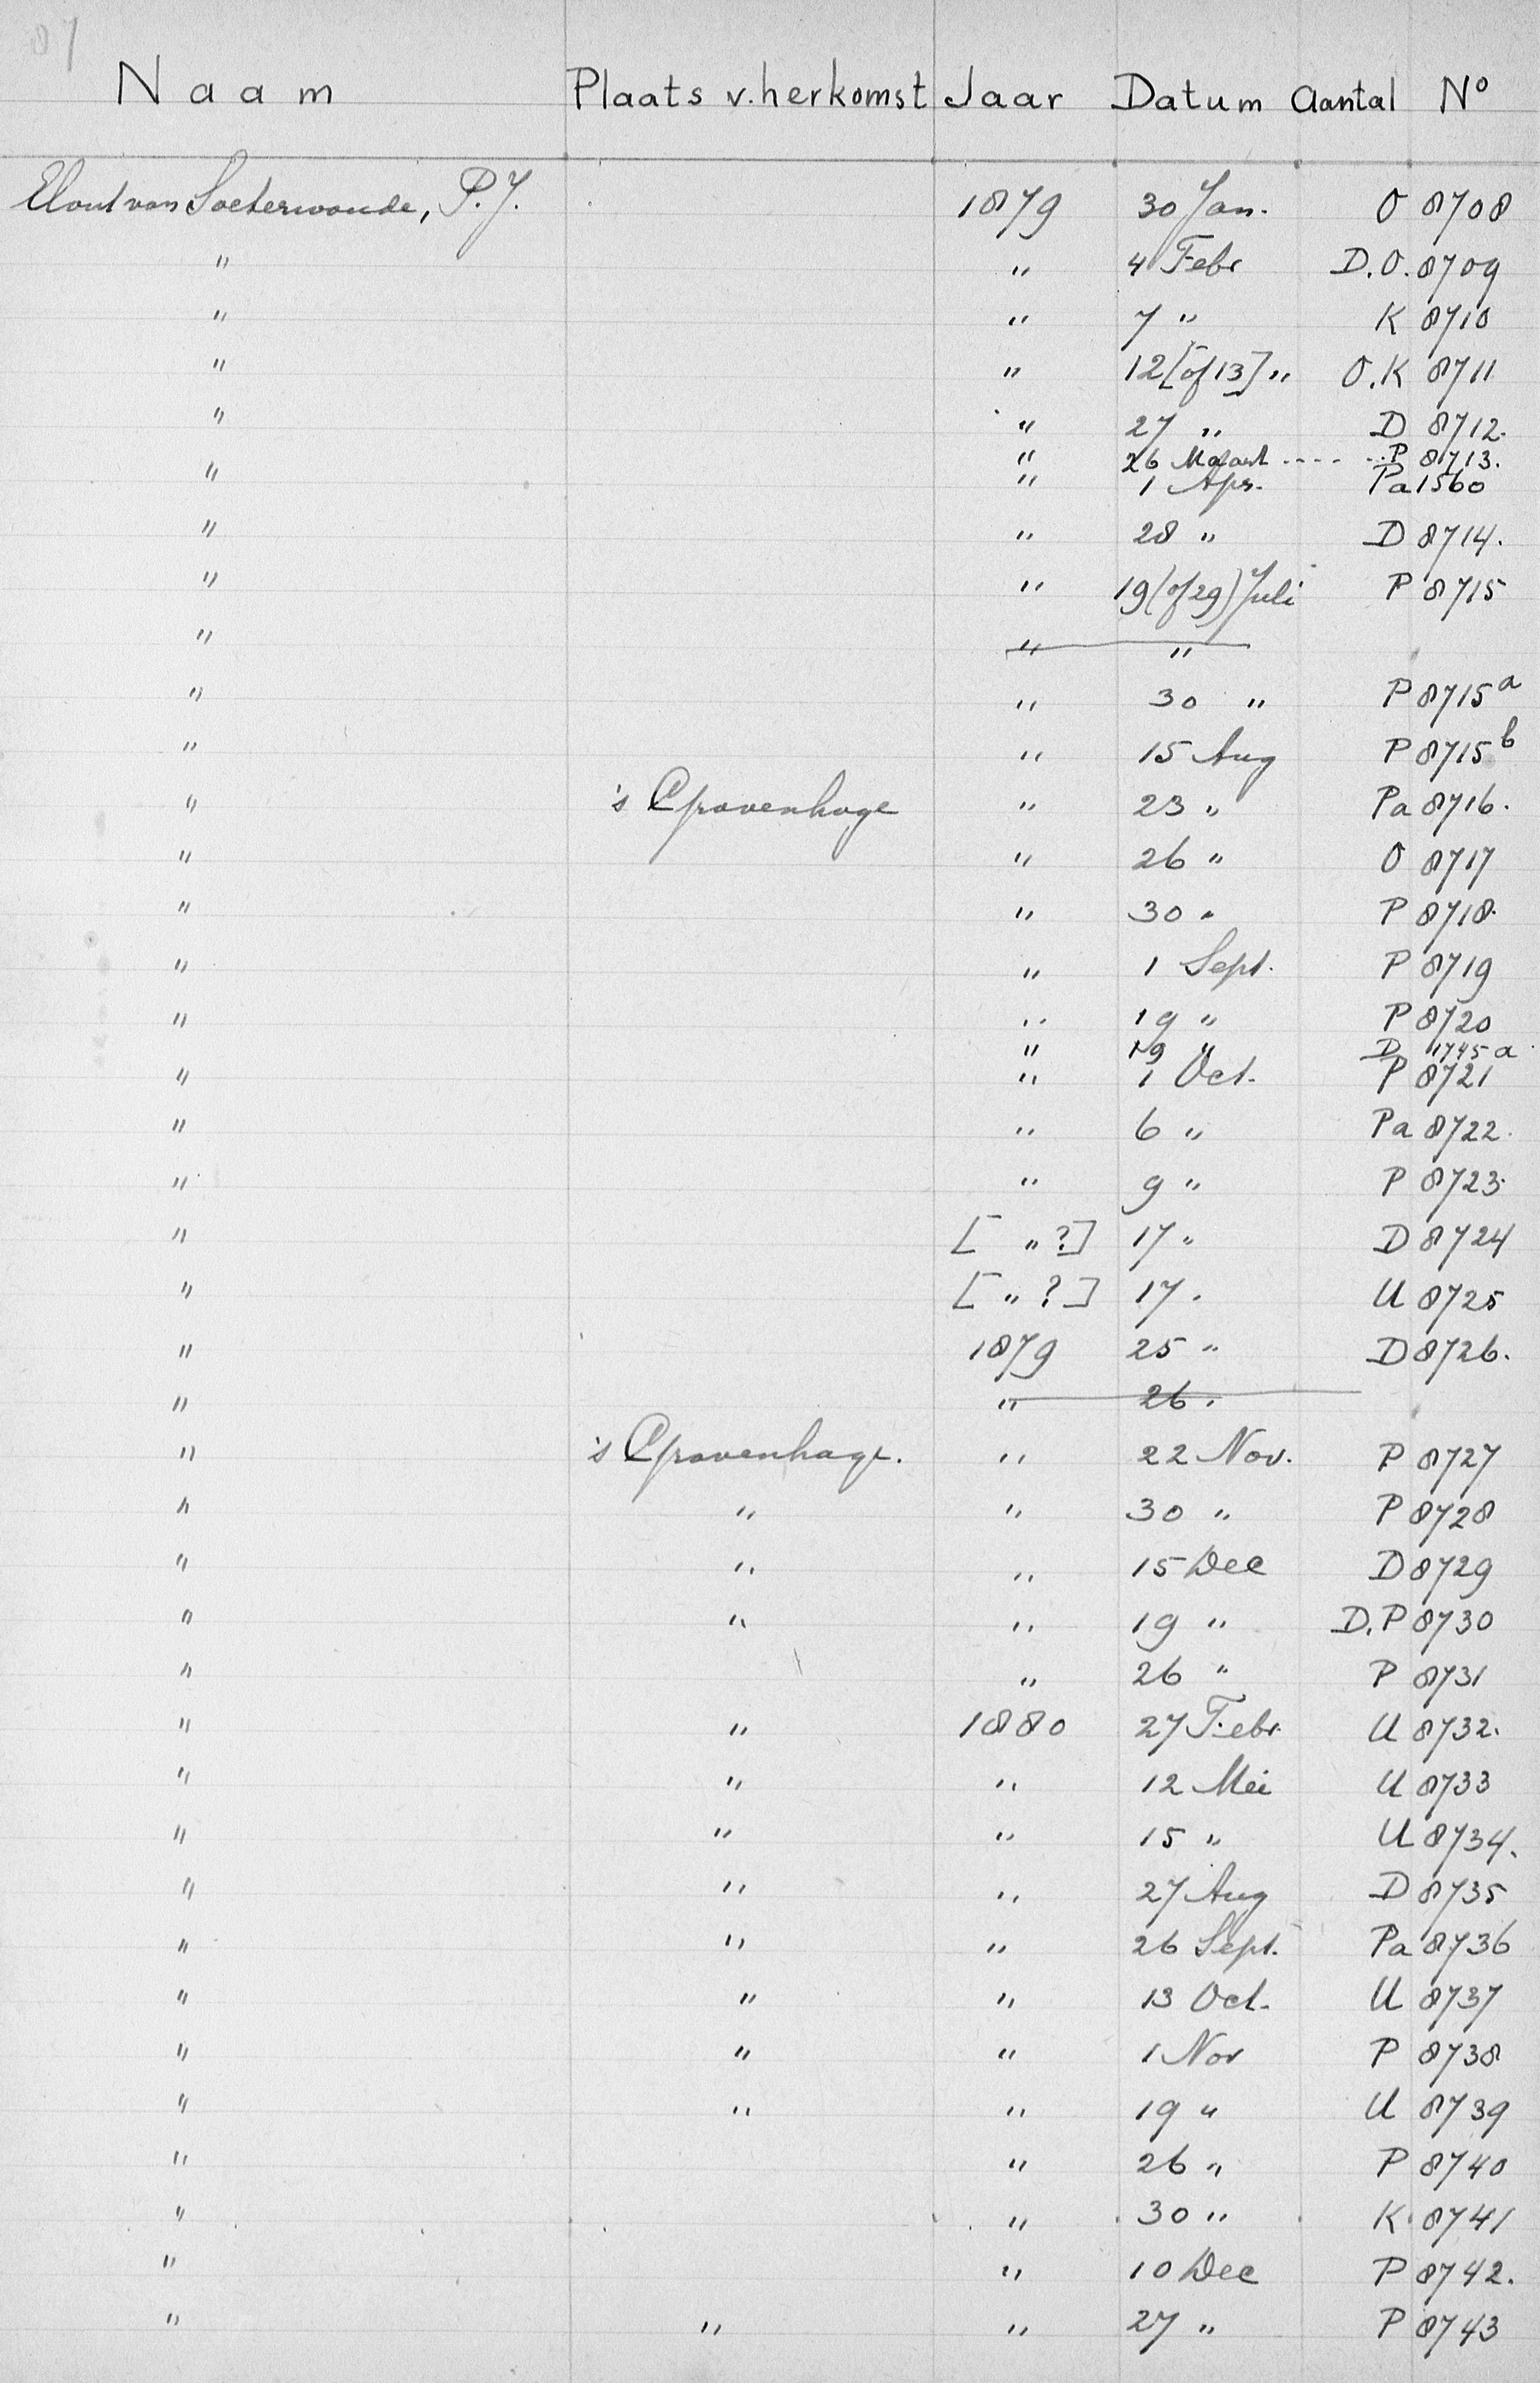 Naam Plaats v. herkomst Jaar Datum Aantal Nº
Elout van Soeterwoude, P.J. 1879 30 Jan. O 8708
" " 4 Febr D.O. 8709
" " 7 " K 8710
" " 12 [of 13] " O.K 8711
" " 27 " D 8712.
" 26 Maart ---- P 8713.
" " 1 Apr. Pa 1560
" " 28 " D 8714.
" " 19 (of 29) Juli P 8715
" " "
" " 30 " P 8715 a
" " 15 Aug P 8715 b
" 's Gravenhage " 23 " Pa 8716.
" " 26 " O 8717
" " 30 " P 8718.
" " 1 Sept. P 8719
" " 19 " P 8720
" 19 " D 1745 a
" " 1 Oct. P 8721
" " 6 " Pa 8722.
" " 9 " P 8723.
" [ " ?] 17 " D 8724
" [ " ?] 17 . U 8725
" 1879 25 " D 8726.
" " 26 .
" 's Gravenhage. " 22 Nov. P 8727
" " " 30 " P 8728
" " " 15 Dec D 8729
" " " 19 " D.P 8730
" " 26 " P 8731
" " 1880 27 Febr. U 8732.
" " " 12 Mei U 8733
" " " 15 " U 8734.
" " " 27 Aug D 8735
" " " 26 Sept. Pa 8736
" " " 13 Oct. U 8737
" " " 1 Nov P 8738
" " " 19 " U 8739
" " 26 " P 8740
" " 30 " K 8741
" " 10 Dec P 8742.
" " " 27 " P 8743